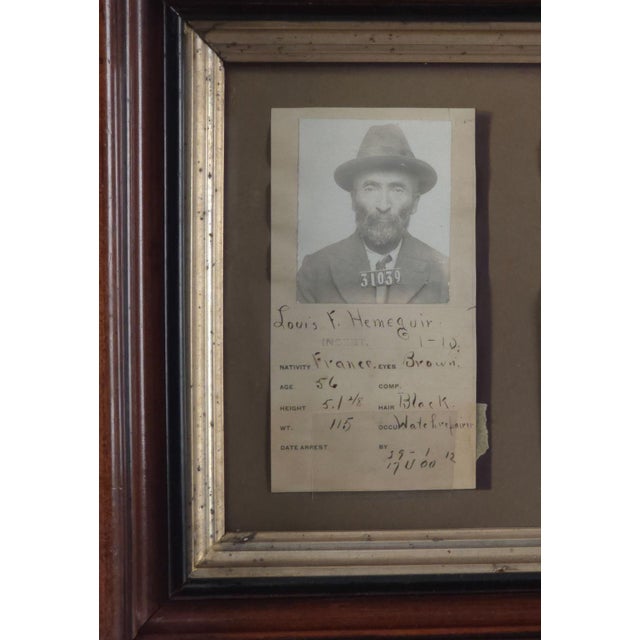 31039
Louis F. Hemeguir.
INCEST. 1-10.
NATIVITY France. EYES Brown.
AGE 56 COMP.
HEIGHT 5.1 2/8 HAIR Black.
WT. 115 OCCU Watchrepairer
DATE ARREST BY
39 - 1 12
17 U 00